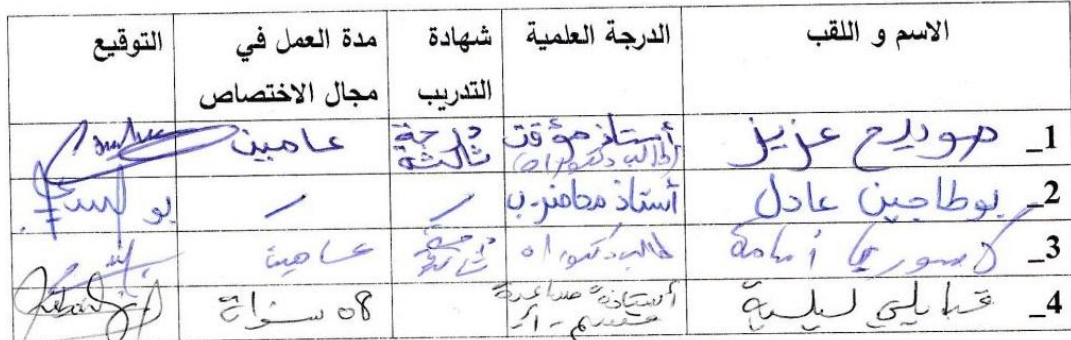 الاسم و اللقب الدرجة العلمية شهادة التدريب مدة العمل في مجال الاختصاص التوقيع
1_ صويلح عزيز أستاذ مؤقت (طالب دكتوراه) درجة ثالثة عامين
2_ بوطاجين عادل أستاذ محاضر ب / /
3_ أسامة طالب دكتوراه درجة ثالثة عامين
4_ قبايلي ليلية أستاذة مساعدة قسم أ 08 سنوات